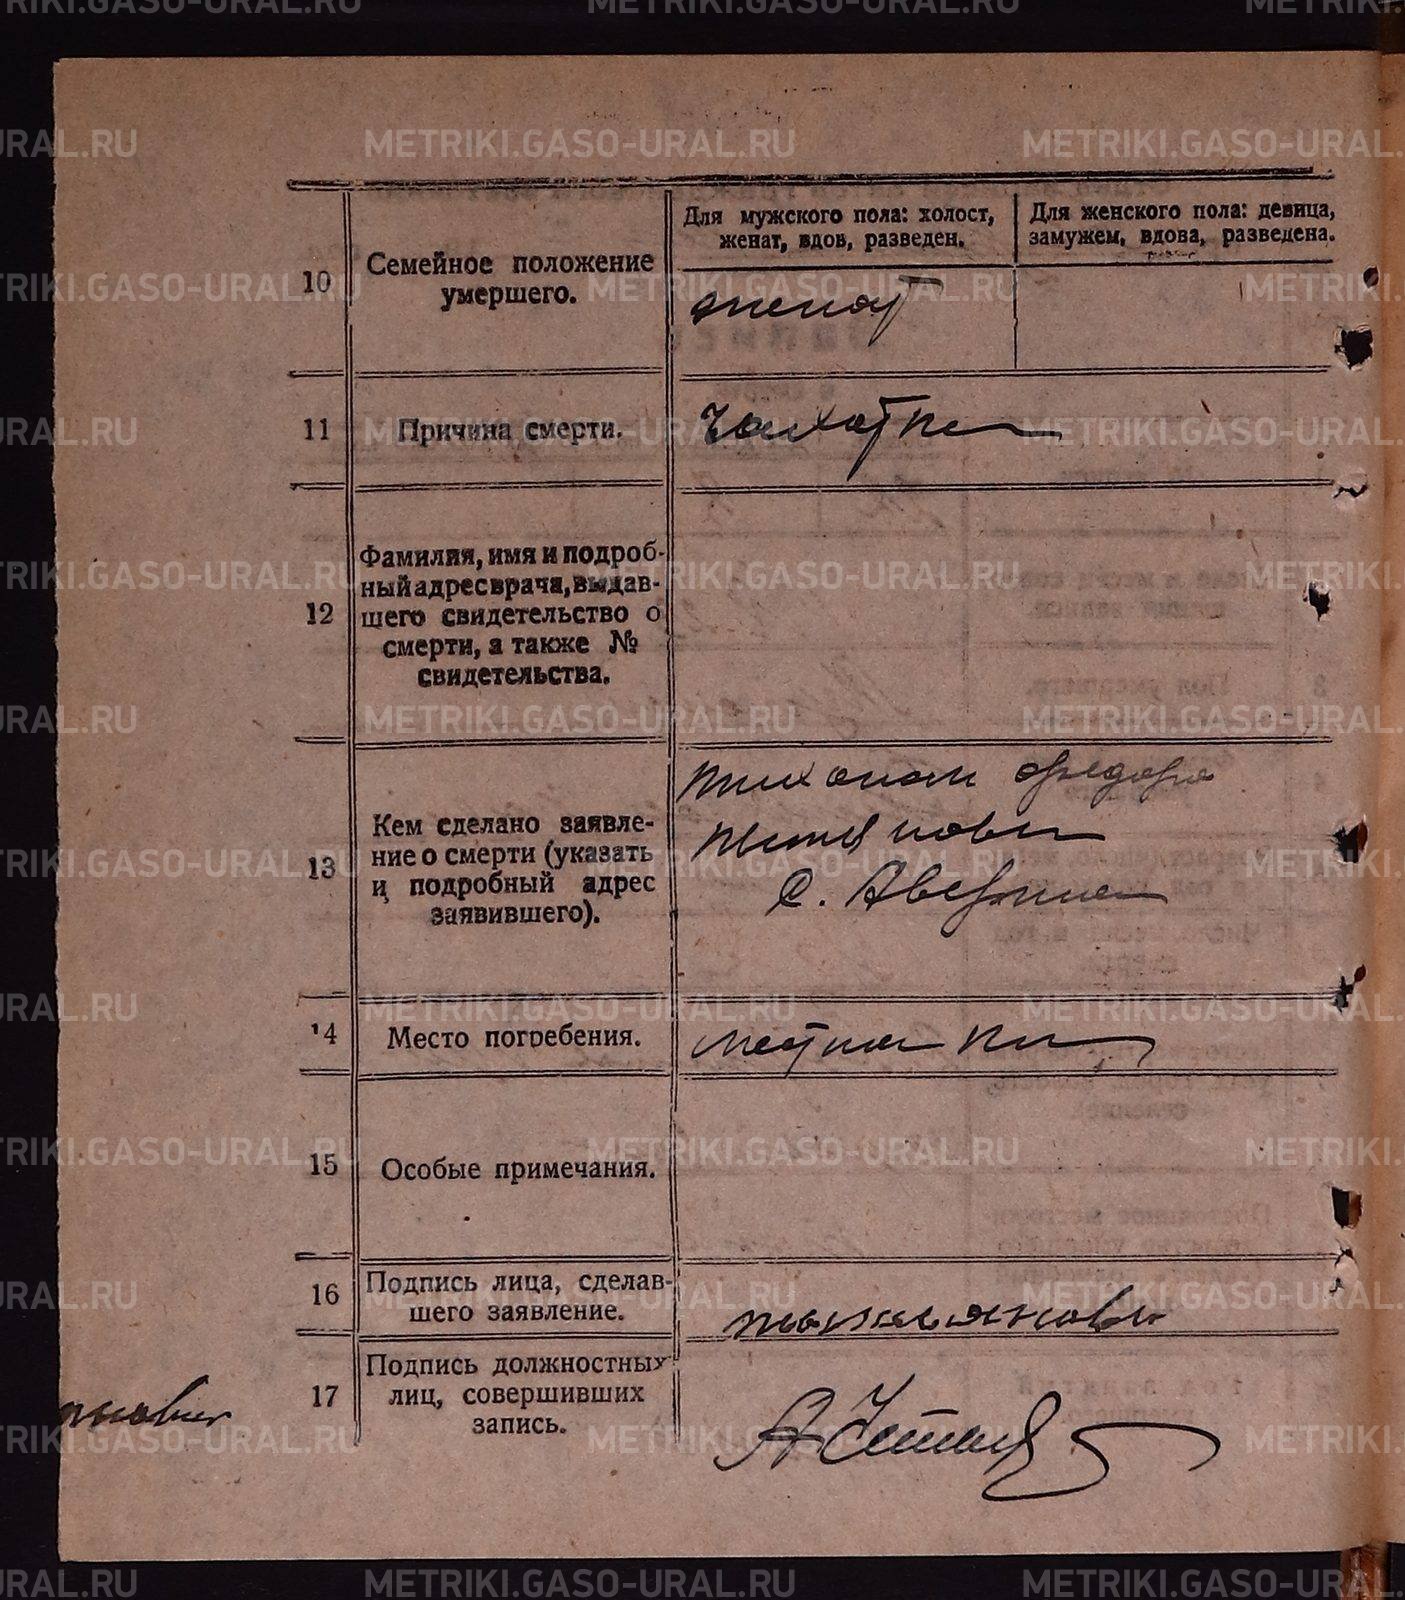 METRIKI.GASO-URAL.RU
Для мужского пола: холост,
женат, вдов, разведен.
Для женского пола: девица,
замужем, вдова, разведена.
10
Семейное положение
умершего.
женат
11
Причина смерти.
Чахотка
12
Фамилия, имя и подроб-
ный адрес врача, выдав-
шего свидетельство о
смерти, а также №
свидетельства.
13
Кем сделано заявле-
ние о смерти (указать
и подробный адрес
заявившего).
с. Аверино
14
Место погребения.
местное
15
Особые примечания.
16
Подпись лица, сделав-
шего заявление.
17
Подпись должностных
лиц, совершивших
запись.